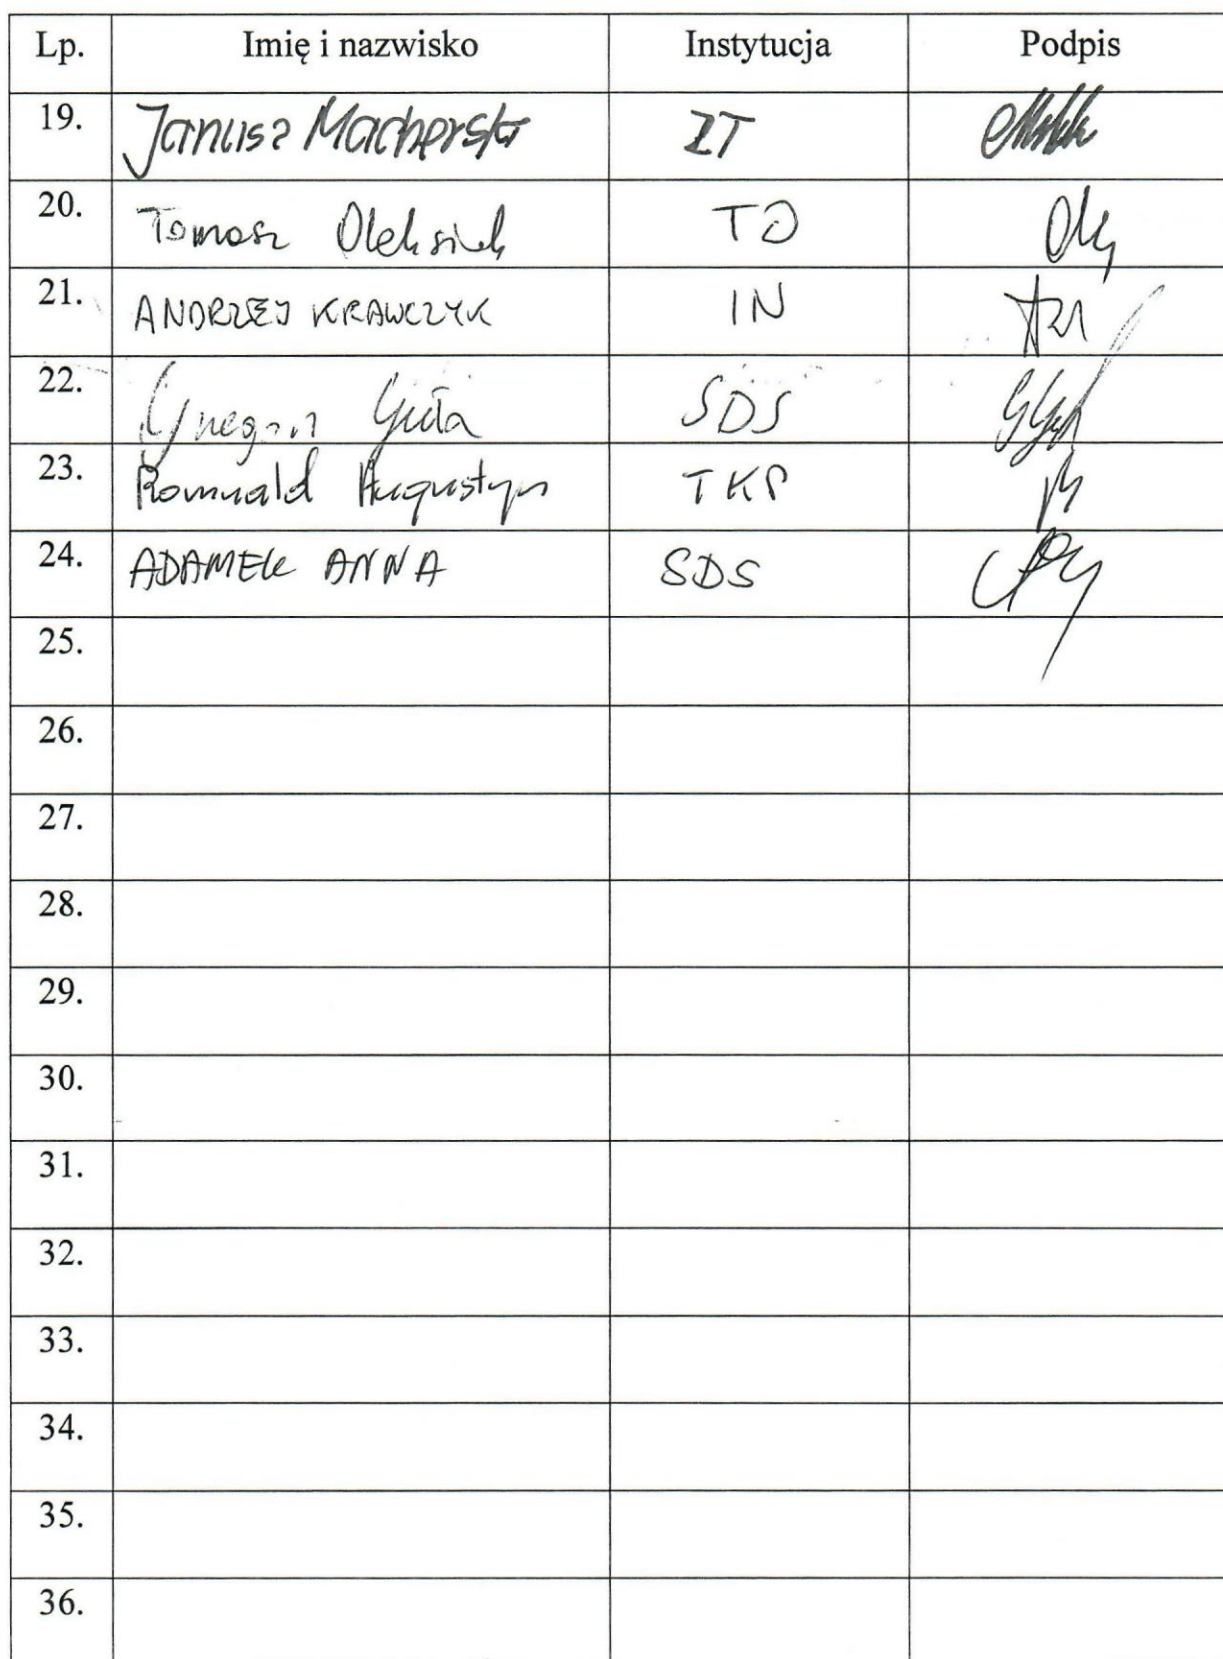 Lp. Imię i nazwisko Instytucja Podpis
19. Janusz Macherski ZT
20. Tomasz Oleksiuk TD
21. ANDRZEJ KRAWCZYK IN
22. Grzegorz SDS
23. Romuald Augustyn TKP
24. ADAMEK ANNA SDS
25.
26.
27.
28.
29.
30.
31.
32.
33.
34.
35.
36.